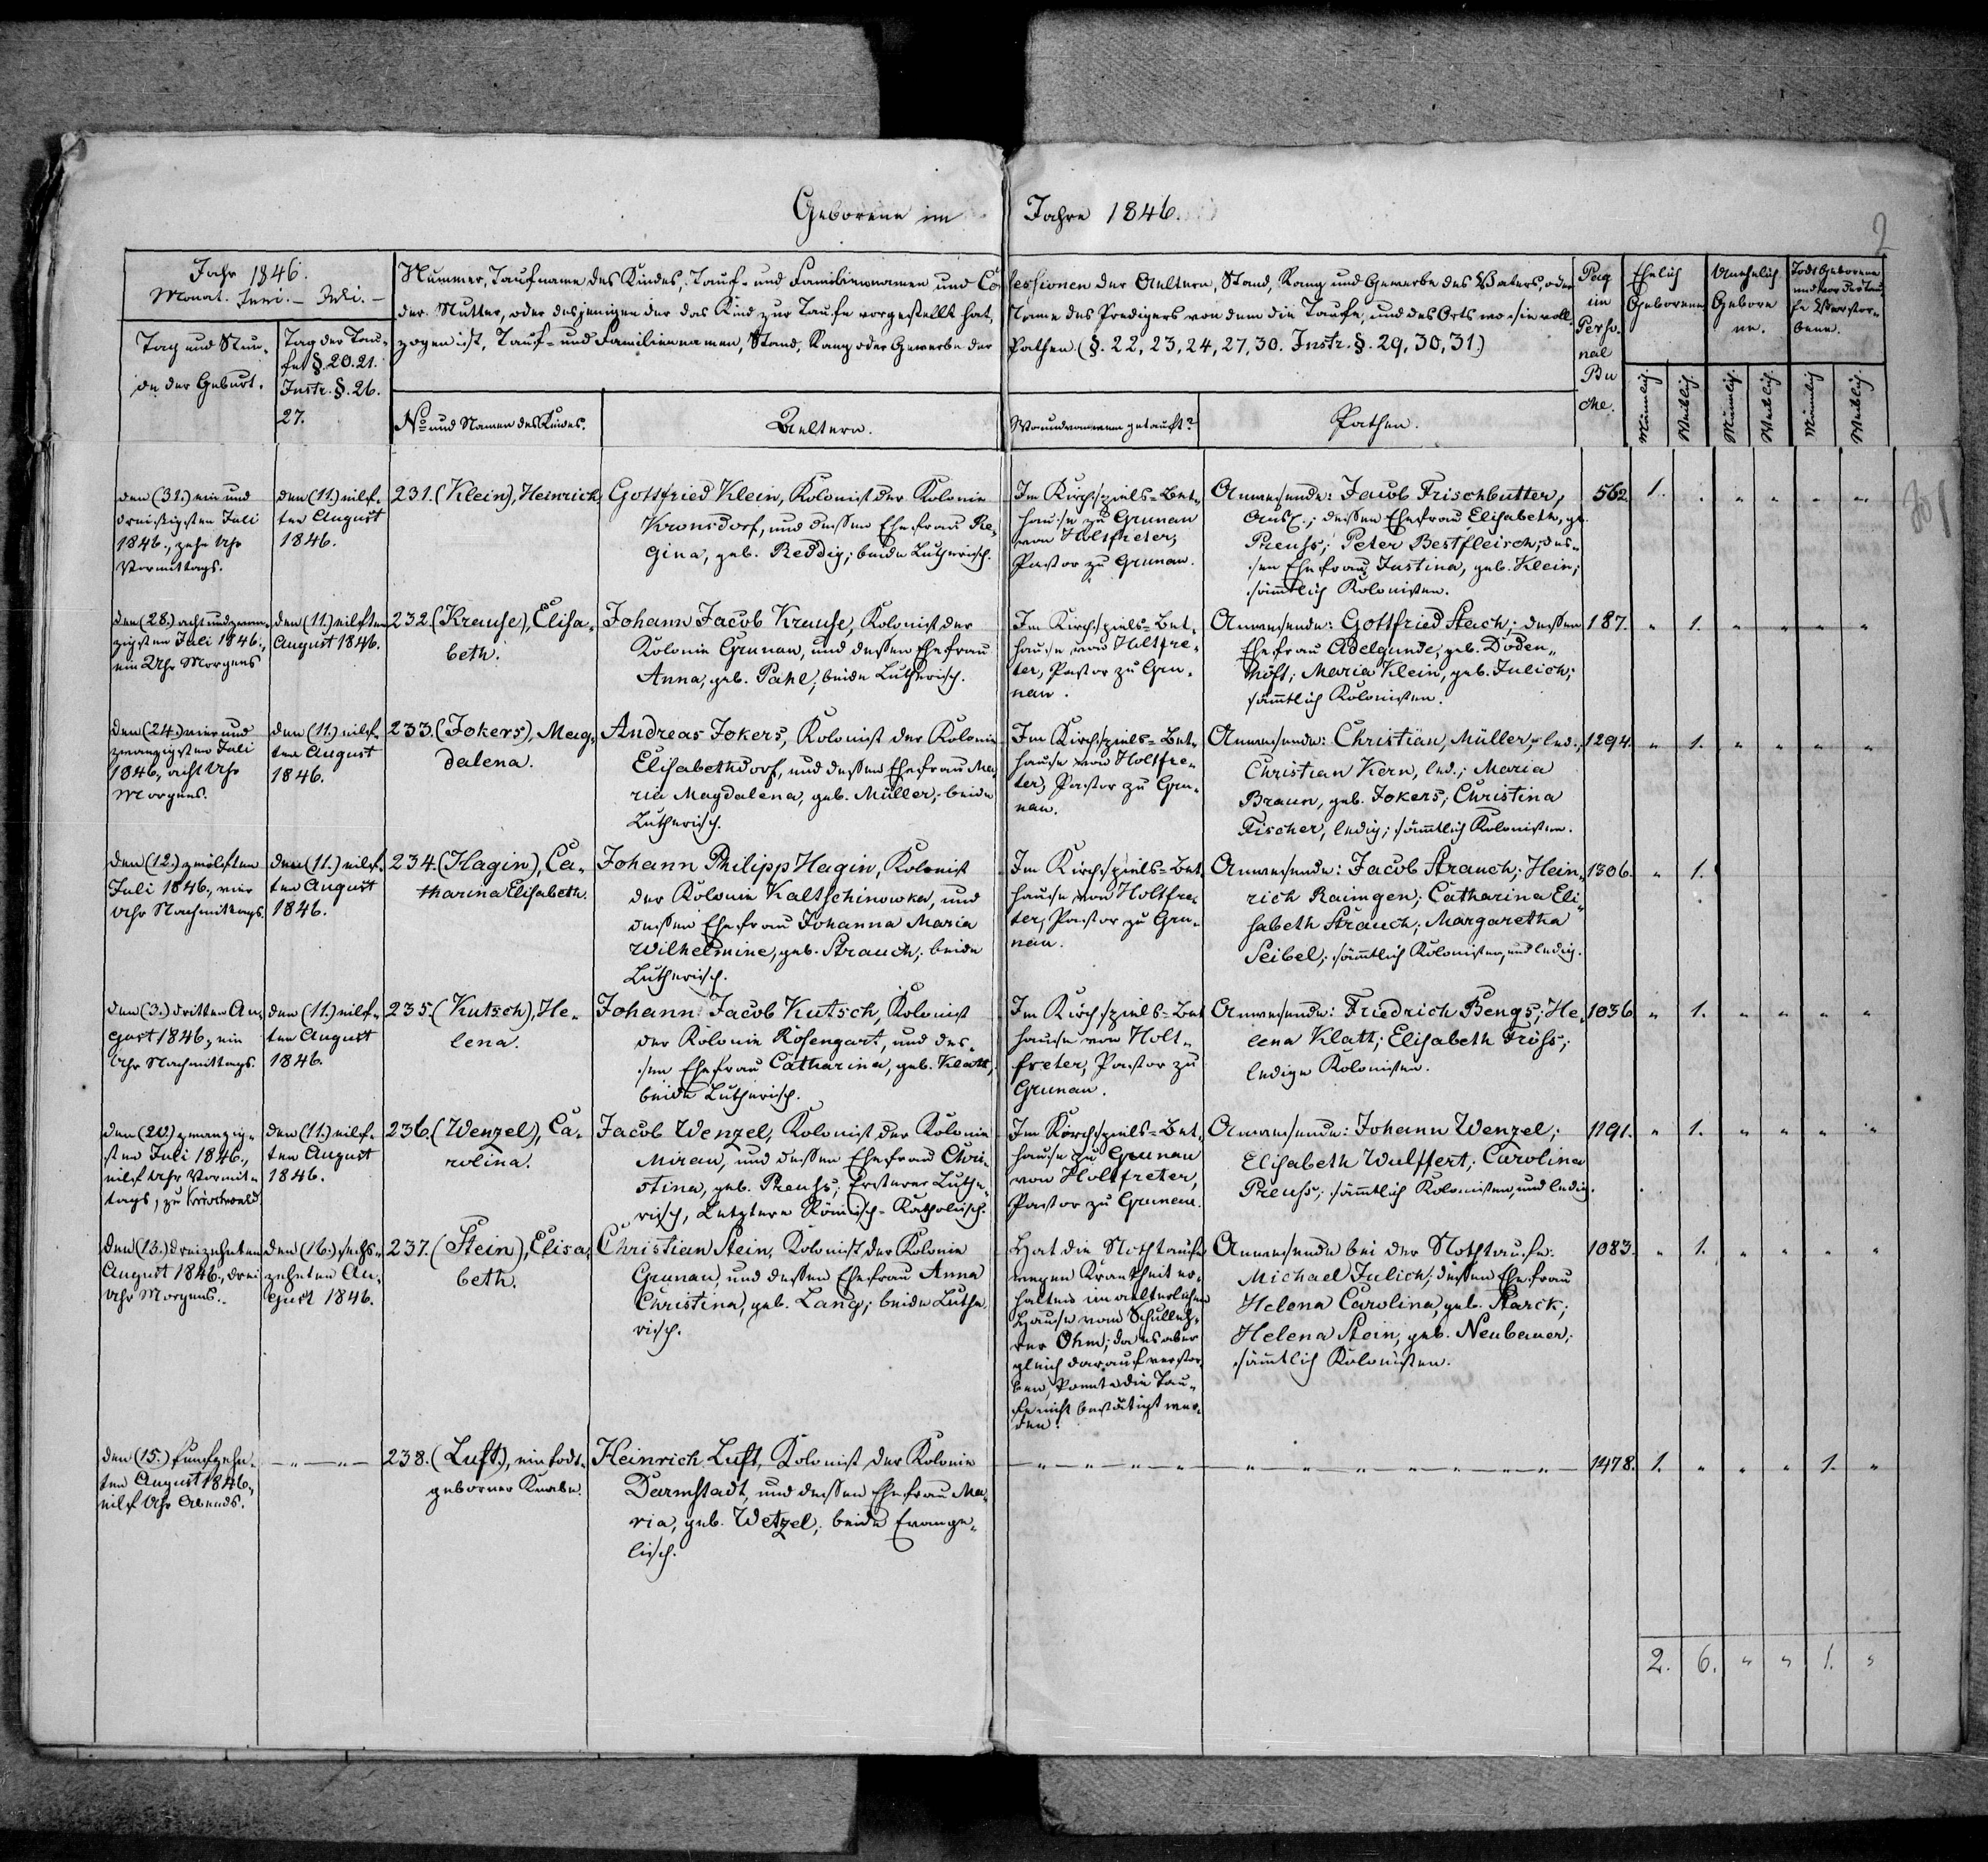 Geborene im Jahre 1846.
2
Jahr 1846.
Monat. Juni. — Juli. —
Tag und Stun-
de der Geburt.
Tag der Tau-
fe §. 20. 21.
Instr. §. 26.
27.
Nummer, Taufname des Kindes, Tauf- und Familiennamen und Confessionen der Aeltern, Stand, Rang und Gewerbe des Vaters, oder
der Mutter, oder desjenigen der das Kind zur Taufe vorgestellt hat, Name des Predigers von dem die Taufe, und des Orts wo sie voll-
zogen ist, Tauf- und Familiennamen, Stand, Rang oder Gewerbe der Pathen. (§. 22, 23, 24, 27, 30. Instr. §. 29, 30, 31.)
No und Namen des Kindes.
Aeltern.
Wo und von wem getauft?
Pathen.
Pag
im
Perso-
nal
Bu
che.
Ehelich
Geborene
Unehelich
Gebore
ne.
Todt Geborene
und vor der Tau-
fe Verstor-
bene.
Männlich.
Weiblich.
Männlich.
Weiblich.
Männlich
Weiblich.
den (31.) ein und
dreißigsten Juli
1846., zehn Uhr
Vormittags.
den (11.) eilf-
ten August
1846.
231. (Klein), Heinrich.
Gottfried Klein, Kolonist der Kolonie
Kronsdorf, und dessen Ehefrau Re-
gina, geb. Reddig; beide Lutherisch.
Im Kirchspiels-Bet-
hause zu Grunau
von Holtfreter,
Pastor zu Grunau.
Anwesende: Jacob Frischbutter,
dessen Ehefrau Elisabeth, ge.
Preuss; Peter Bestfleisch; des-
sen Ehefrau Justina, geb. Klein;
sämtlich Kolonisten.
562. 1. . " " " "
den (28.) acht und zwan-
zigsten Juli 1846.,
ein Uhr Morgens
den (11.) eilften
August 1846.
232. (Krause), Elisa-
beth.
Johann Jacob Krause, Kolonist der
Kolonie Grunau, und dessen Ehefrau
Anna, geb. Pahl; beide Lutherisch.
Im Kirchspiels-Bet-
hause von Holtfre-
ter, Pastor zu Gru-
nau.
Anwesende: Gottfried Stach; dessen
Ehefrau Adelgunde, geb. Doden-
höft; Maria Klein, geb. Julich;
sämtlich Kolonisten.
187. " 1. " " " "
den (24.) vier und
zwanzigsten Juli
1846., acht Uhr
Morgens.
den (11.) eilf-
ten August
1846.
233. (Jokers), Mag-
dalena.
Andreas Jokers, Kolonist der Kolonie
Elisabethdorf, und dessen Ehefrau Ma-
ria Magdalena, geb. Müller; beide
Lutherisch.
Im Kirchspiels-Bet-
hause von Holtfre-
ter, Pastor zu Gru-
nau.
Anwesende: Christian Müller, led.,
Christian Kern, led.; Maria
Braun, geb. Jokers; Christina
Fischer, ledig; sämtlich Kolonisten.
1294. " 1. " " " "
den (12.) zwölften
Juli 1846., vier
Uhr Nachmittags.
den (11.) eilf-
ten August
1846.
234. (Hagin), Ca-
tharina Elisabeth.
Johann Philipp Hagin, Kolonist
der Kolonie Kaltschinowka, und
dessen Ehefrau Johanna Maria
Wilhelmine, geb. Strauch; beide
Lutherisch.
Im Kirchspiels-Bet
hause von Holtfre-
ter, Pastor zu Gru-
nau.
Anwesende: Jacob Strauch; Hein-
rich Raimgen; Catharina Eli-
sabeth Strauch; Margaretha
Seibel; sämtlich Kolonisten, und ledig.
1306. " 1.
den (3.) dritten Au-
gust 1846., ein
Uhr Nachmittags.
den (11.) eilf-
ten August
1846.
235. (Kutsch), He-
lena.
Johann Jacob Kutsch, Kolonist
der Kolonie Rosengart, und des-
sen Ehefrau Catharina, geb. Klatt,
beide Lutherisch.
Im Kirchspiels-Bet
hause von Holt-
freter, Pastor zu
Grunau.
Anwesende: Friedrich Bengs; He-
lena Klatt; Elisabeth Fröss;
ledige Kolonisten.
1036 " 1. " " " "
den (20.) zwanzig-
sten Juli 1846.,
eilf Uhr Vormit-
tags, zu
den (11.) eilf-
ten August
1846.
236. (Wenzel), Ca-
rolina.
Jacob Wenzel, Kolonist der Kolonie
Mirau, und dessen Ehefrau Chri-
stina, geb. Preuss; Ersterer Luthe-
risch, Letztere Römisch-Katholisch.
Im Kirchspiels-Bet-
hause zu Grunau
von Holtfreter,
Pastor zu Grunau.
Anwesende: Johann Wenzel;
Elisabeth Wulffert; Carolina
Preuss; sämtlich Kolonisten, und ledig.
1191. " 1. " " " "
den (13.) dreizehnten
August 1846., drei
Uhr Morgens.
den (16.) sechs-
zehnten Au-
gust 1846.
237. (Stein), Elisa-
beth.
Christian Stein, Kolonist der Kolonie
Grunau, und dessen Ehefrau Anna
Christina, geb. Lang; beide Luthe-
risch.
Hat die Nothtaufe
wegen Krankheit er-
halten im aelterlichen
Hause vom Schulleh-
rer Ohm; da es aber
gleich darauf verstor-
ben, konnte die Tau-
fe nicht bestätigt wer-
den.
Anwesende bei der Nothtaufe:
Michael Julich; dessen Ehefrau
Helena Carolina, geb. Starck;
Helena Stein, geb. Neubauer;
sämtlich Kolonisten.
1083. " 1. " " " "
den (15.) fünfzehn-
ten August 1846.,
eilf Uhr Abends.
— " — " —
238. (Luft), ein todt-
geborner Knabe.
Heinrich Luft, Kolonist der Kolonie
Darmstadt, und dessen Ehefrau Ma-
ria, geb. Wetzel; beide Evange-
lisch.
1478. 1. " " " 1. "
2. 6. " " 1. "